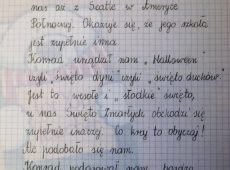 nas aż z Seatle w Ameryce
Północnej. Okazuje się, że jego szkoła
jest zupełnie inna.
Konrad urządził nam „Halloween"
czyli „święto dyni" czyli „święto duchów".
Jest to wesołe i „słodkie" święto,
u nas Święto Zmarłych obchodzi się
zupełnie inaczej. Co kraj to obyczaj!
Ale podobało się nam.
Konrad podarował nam bardzo